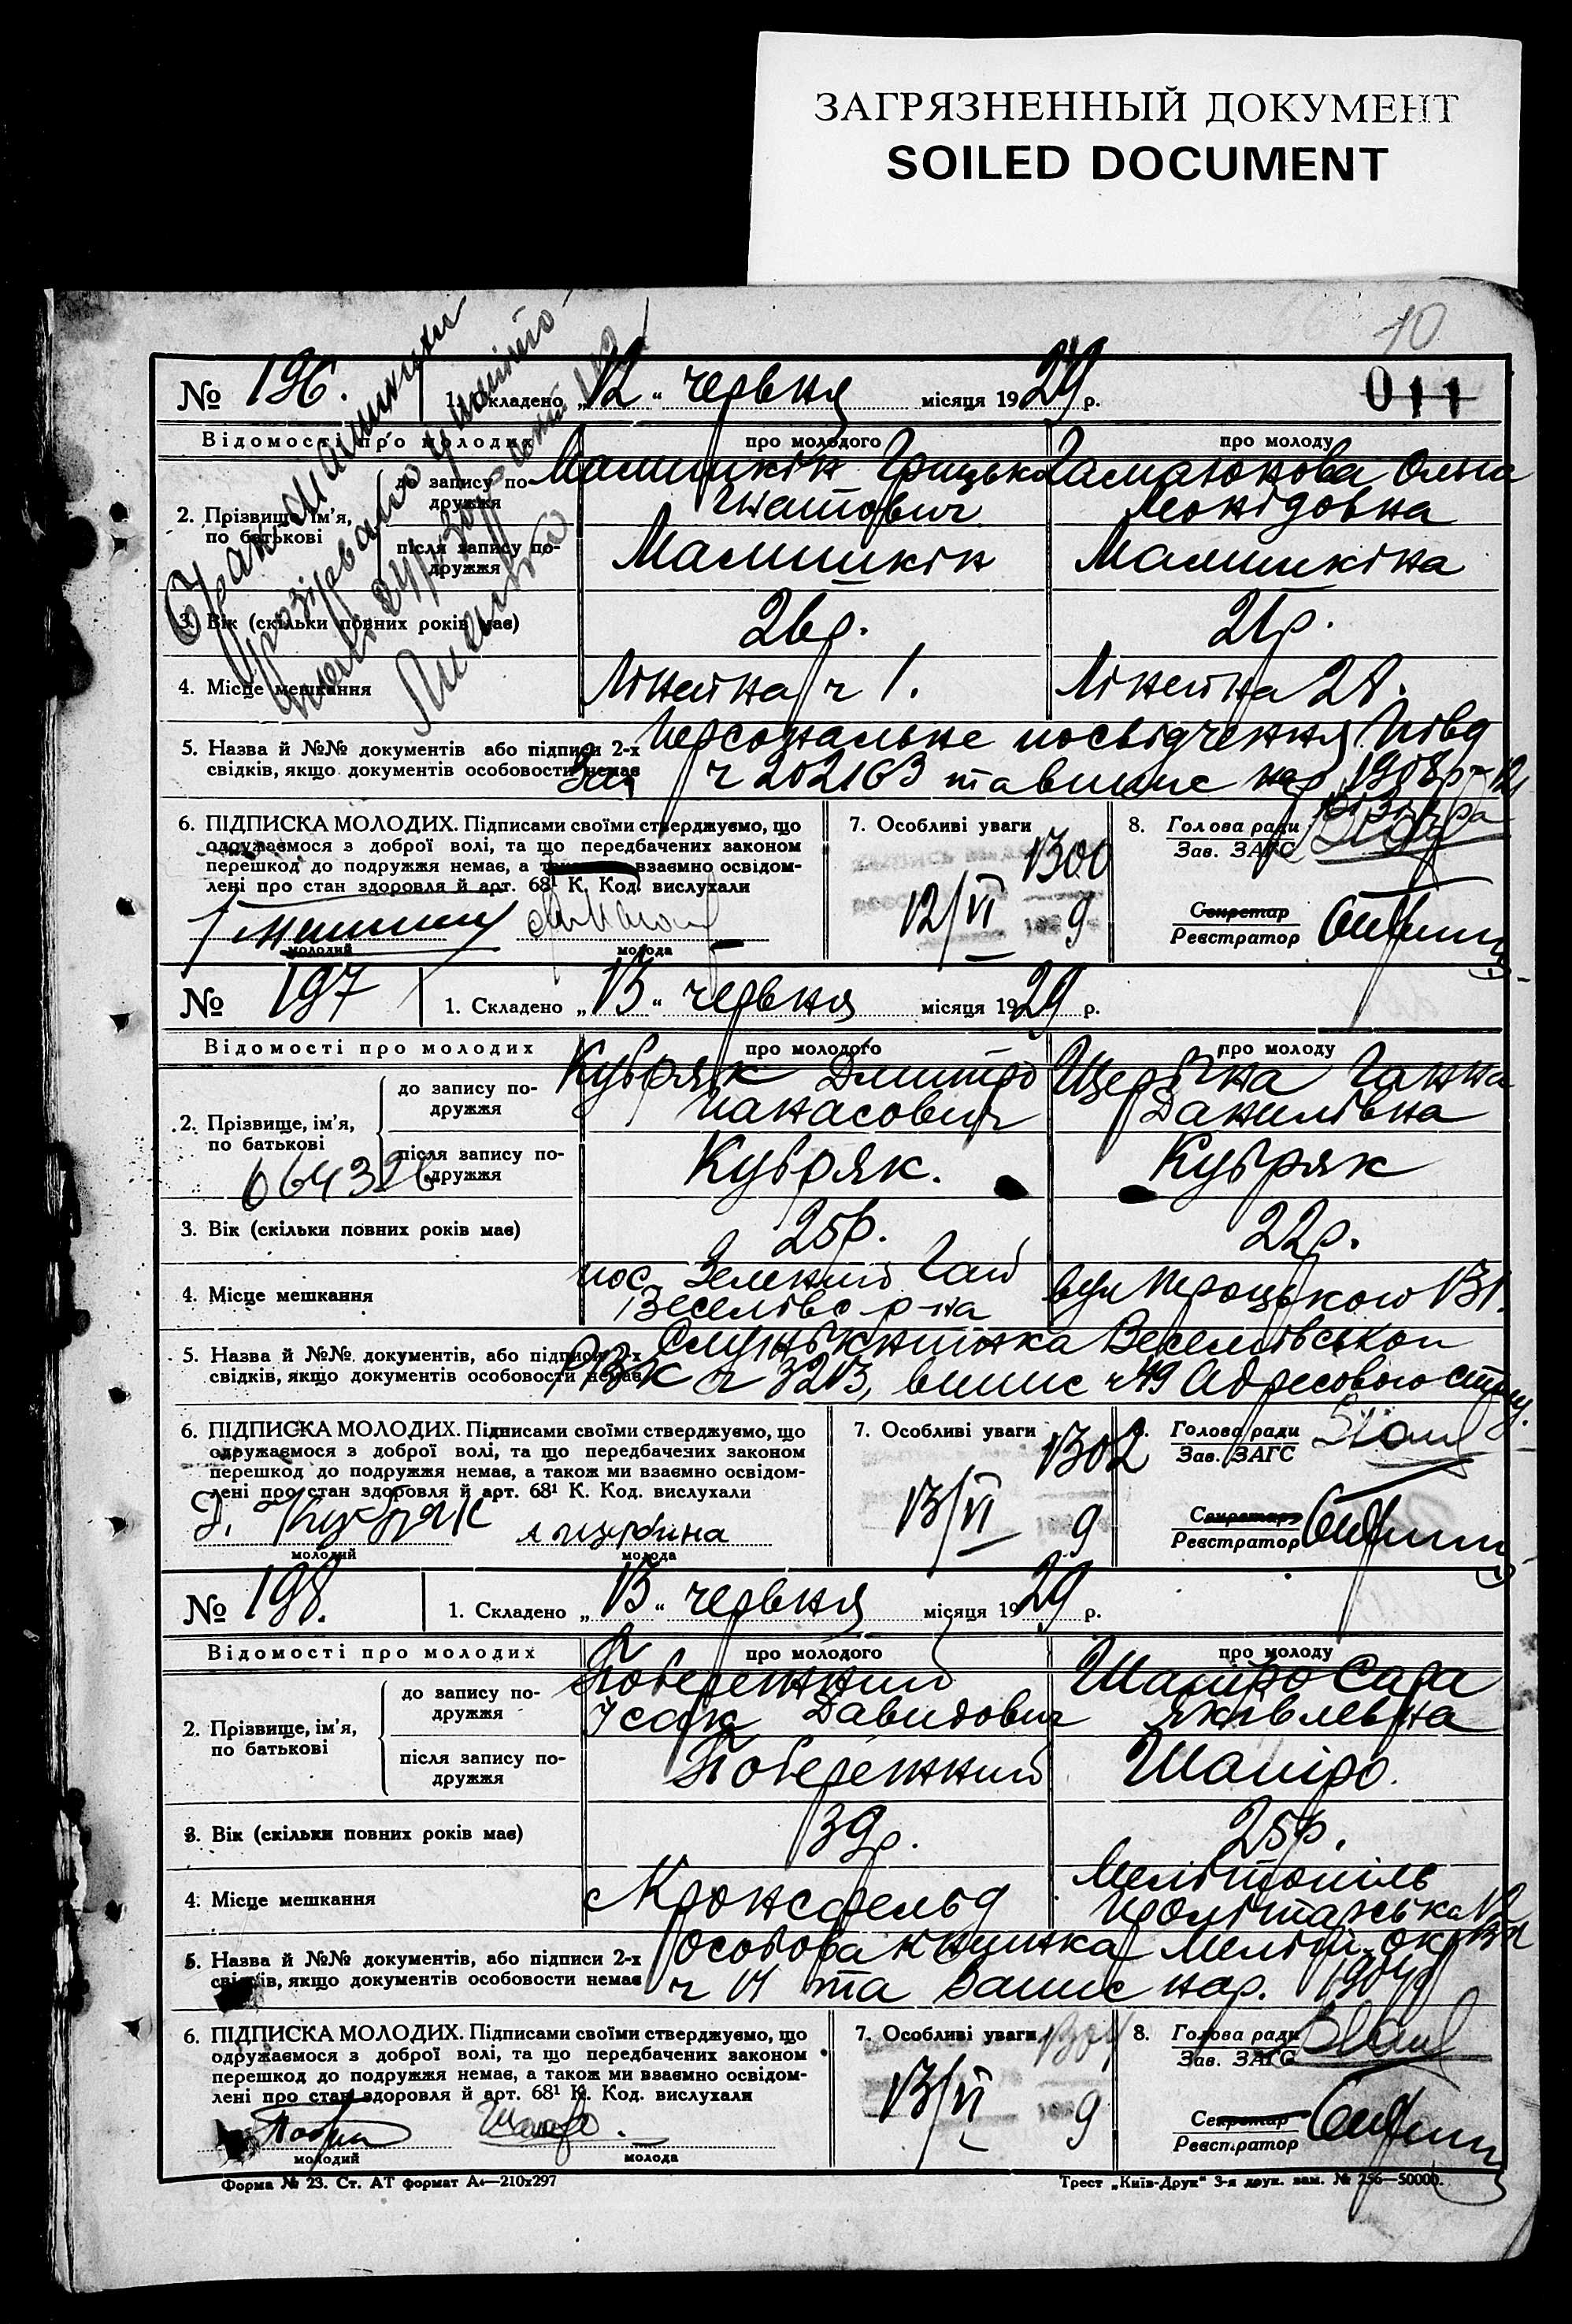 ЗАГРЯЗНЕННЫЙ ДОКУМЕНТ
SOILED DOCUMENT
10
011
№ 196. 1. Складено „12“ червня місяця 1929 р.
Відомості про молодих про молодого про молоду
2. Прізвище, ім’я, по батькові
до запису подружжя
Малишкін Грицько
Гнатович
Ольга
Леонідовна
після запису подружжя Малишкін Малишкіна
3. Вік (скільки повних років має) 26р. 21р.
4. Місце мешкання Лінейна ч 1. Лінейна 28.
5. Назва й №№ документів або підписи 2-х Персональне посвідчення Півд
свідків, якщо документів особовости немає ч 202163 та випис нар 1908р
6. ПІДПИСКА МОЛОДИХ. Підписами своїми стверджуємо, що
одружаємося з доброї волі, та що передбачених законом
перешкод до подружжя немає, а взаємно освідом-
лені про стан здоровля й арт. 68¹ К. Код. вислухали
молодий молода
7. Особливі уваги
1300
12/VI 9
8. Голова ради
Зав. ЗАГС
Секретар
Реєстратор
№ 197 1. Складено „13“ червня місяця 1929 р.
Відомості про молодих про молодого про молоду
2. Прізвище, ім’я, по батькові
до запису подружжя
Кубряк Дмитро
Панасович
Щербина Ганна
Данилівна
після запису подружжя Кубряк. Кубряк
664326
3. Вік (скільки повних років має) 25р. 22р.
4. Місце мешкання
пос Зелений Гай
Веселівс р-на
вул Троцького 131.
5. Назва й №№ документів, або підписи 2-х книжка Веселівської
свідків, якщо документів особовости немає РВК ч 3213, випис ч 49 Адресового столу.
6. ПІДПИСКА МОЛОДИХ. Підписами своїми стверджуємо, що
одружаємося з доброї волі, та що передбачених законом
перешкод до подружжя немає, а також ми взаємно освідом-
лені про стан здоровля й арт. 68¹ К. Код. вислухали
Д. Кубряк Щербина
молодий молода
7. Особливі уваги
1302
13/VI 9
Голова ради
Зав. ЗАГС
Секретар
Реєстратор
№ 198. 1. Складено „13“ червня місяця 1929 р.
Відомості про молодих про молодого про молоду
2. Прізвище, ім’я, по батькові
до запису подружжя
Побережний
Ісаак Давидович
Шапіро Сара
Яківлевна
після запису подружжя Побережний Шапіро.
3. Вік (скільки повних років має) 39р. 25р.
4. Місце мешкання
с Кронсфельд
Мелітопіль
Пролітарська 12
5. Назва й №№ документів, або підписи 2-х Особова книжка Меліт. окр
свідків, якщо документів особовости немає ч 17 та випис нар. 1904р
6. ПІДПИСКА МОЛОДИХ. Підписами своїми стверджуємо, що
одружаємося з доброї волі, та що передбачених законом
перешкод до подружжя немає, а також ми взаємно освідом-
лені про стан здоровля й арт. 68¹ К. Код. вислухали
молодий молода
7. Особливі уваги
1304
13/VI 9
8. Голова ради
Зав. ЗАГС
Секретар
Реєстратор
Форма № 23. Ст. АТ формат А4—210х297 Трест „Київ-Друк“ 3-я друк. зам. № 256—50000.